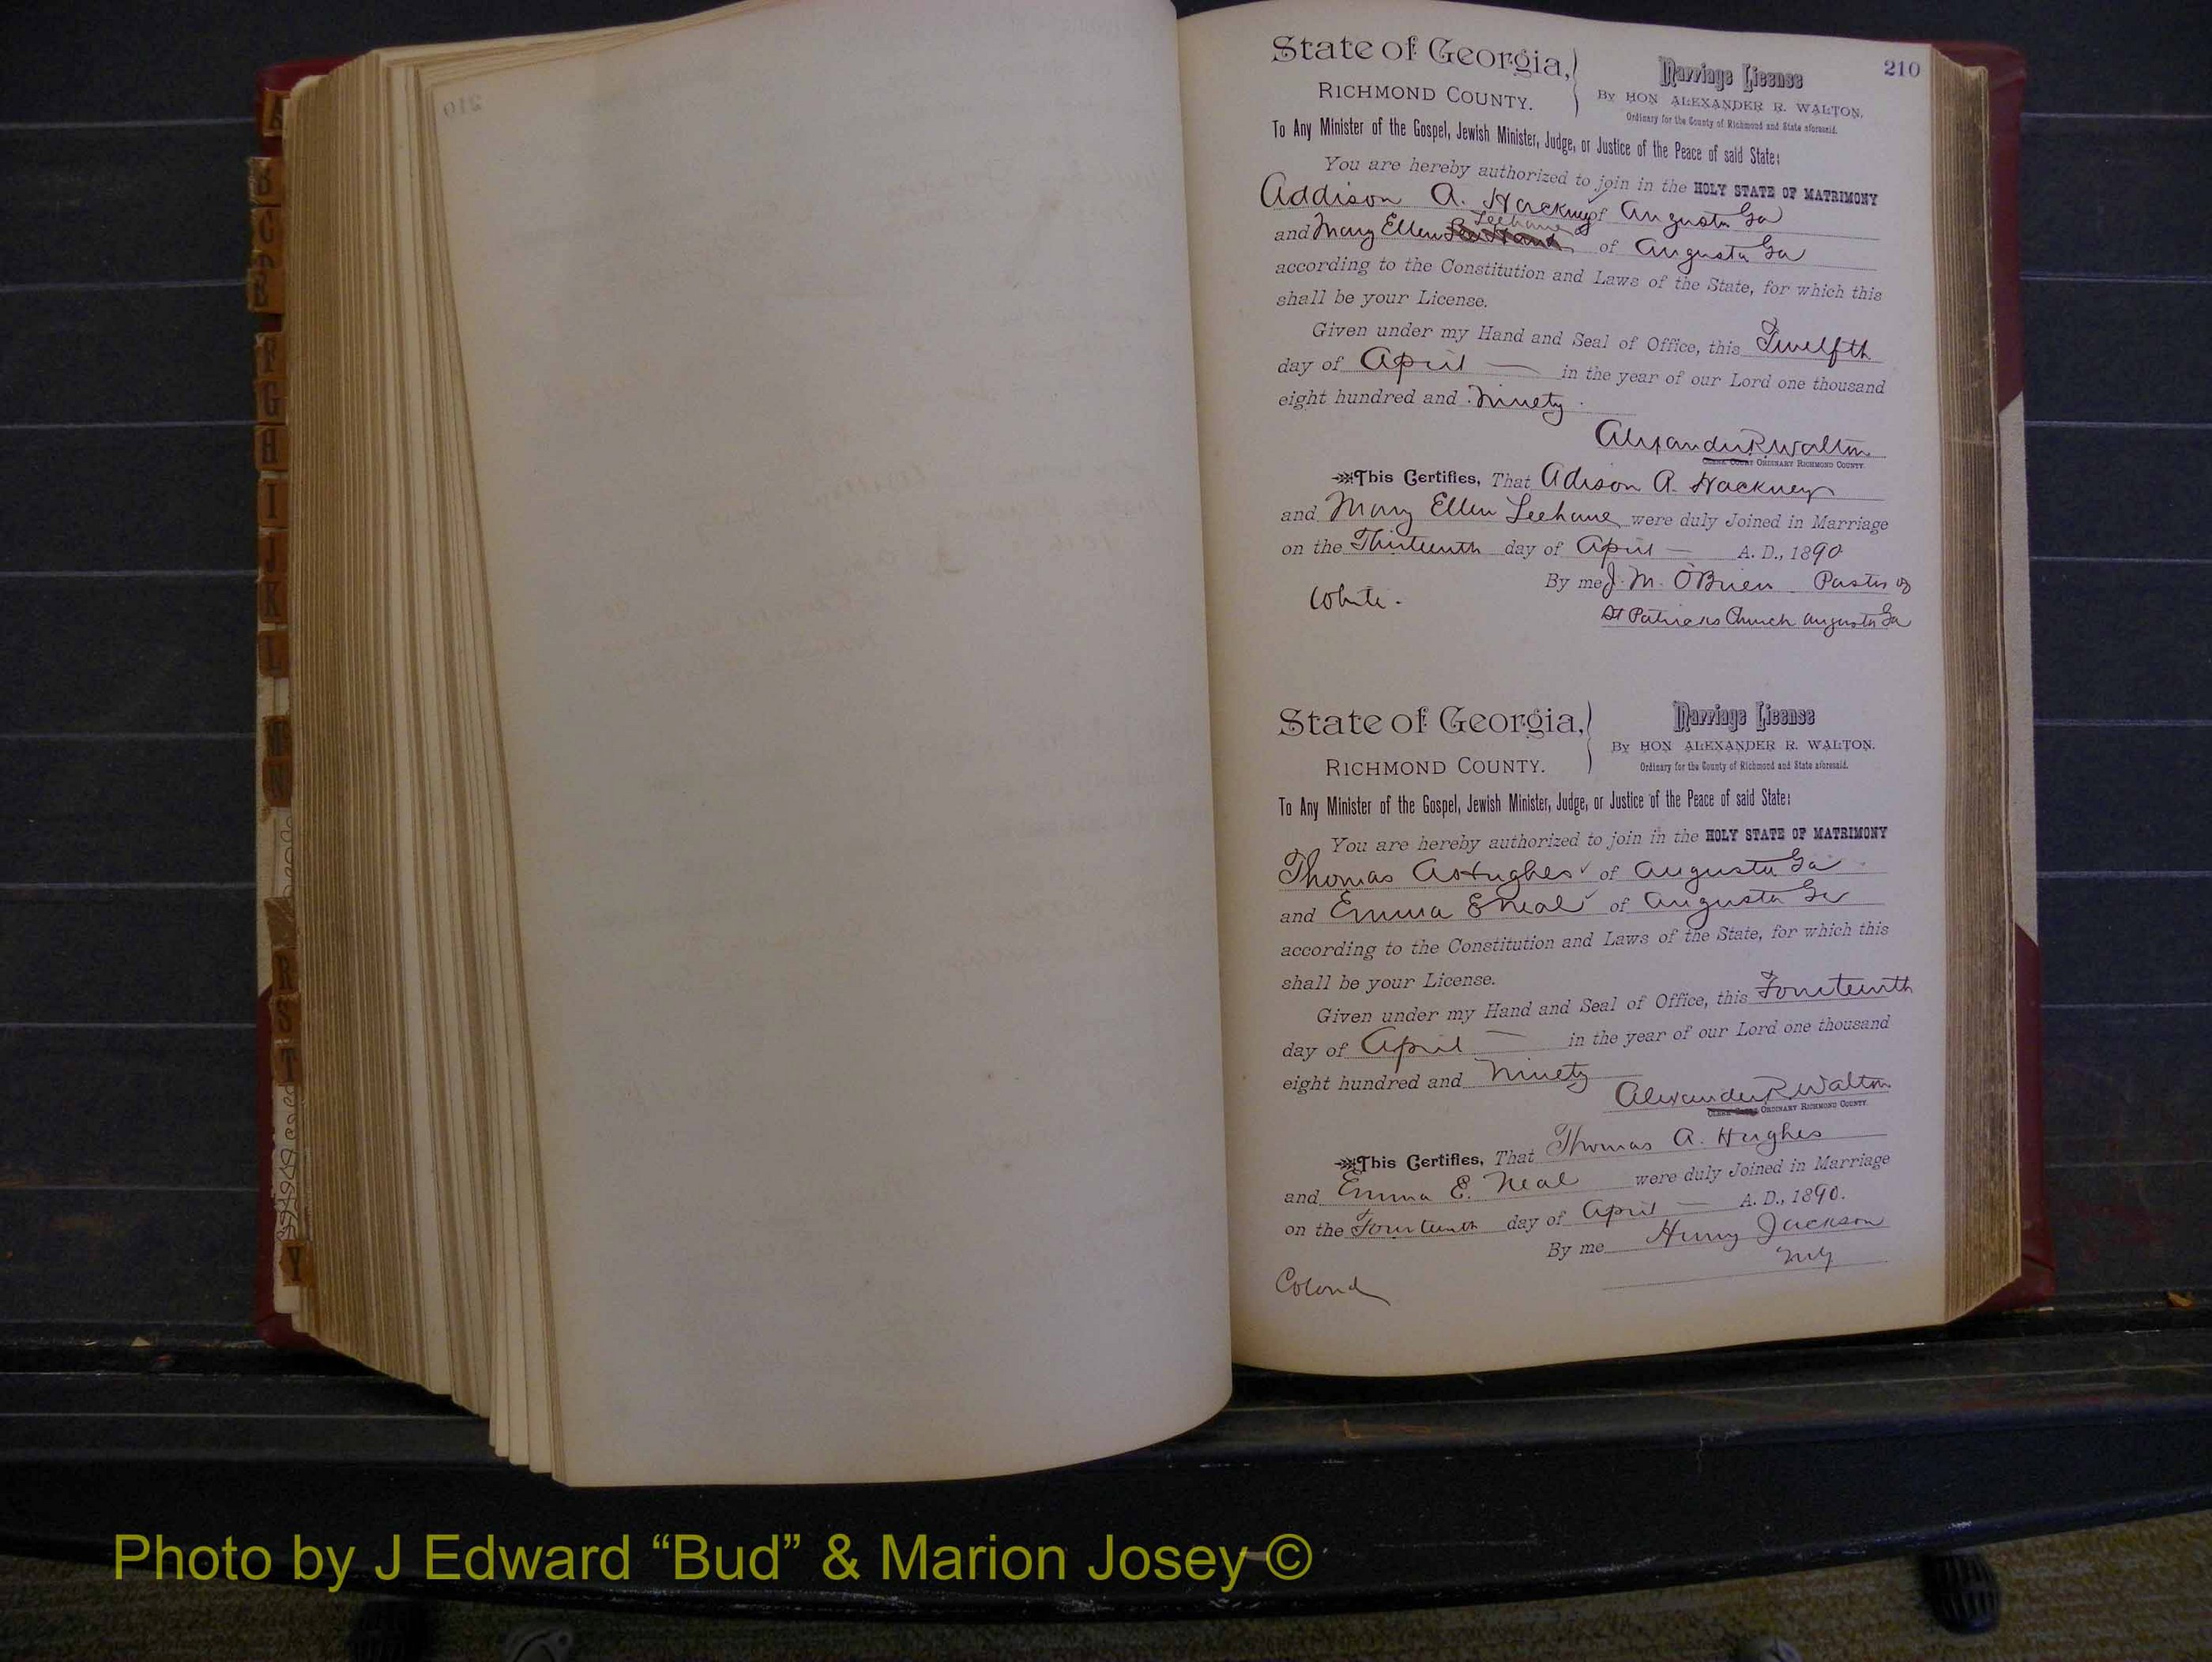 210
State of Georgia,
RICHMOND COUNTY.
Marriage License
By HON ALEXANDER R. WALTON,
Ordinary for the County of Richmond and State aforesaid.
To Any Minister of the Gospel, Jewish Minister, Judge, or Justice of the Peace of said State:
You are hereby authorized to join in the HOLY STATE OF MATRIMONY
Addison A. Hackney of Augusta Ga
Leehane
and Mary Ellen of Augusta Ga
according to the Constitution and Laws of the State, for which this
shall be your License.
Given under my Hand and Seal of Office, this Twelfth
day of April in the year of our Lord one thousand
eight hundred and Ninety
Alexander R. Walton
CLERK COURT ORDINARY RICHMOND COUNTY.
This Certifies, That Adison A. Hackney
and Mary Ellen Leehane were duly Joined in Marriage
on the Thirteenth day of April A. D., 1890
By me J. M. O'Brien Pastor of
White.
St Patricks Church Augusta Ga
State of Georgia,
RICHMOND COUNTY.
Marriage License
By HON ALEXANDER R. WALTON.
Ordinary for the County of Richmond and State aforesaid.
To Any Minister of the Gospel, Jewish Minister, Judge, or Justice of the Peace of said State:
You are hereby authorized to join in the HOLY STATE OF MATRIMONY
Thomas A Hughes of Augusta Ga
and Emma E Neal of Augusta Ga
according to the Constitution and Laws of the State, for which this
shall be your License.
Given under my Hand and Seal of Office, this Fourteenth
day of April in the year of our Lord one thousand
eight hundred and Ninety
Alexander R. Walton
CLERK COURT ORDINARY RICHMOND COUNTY.
This Certifies, That Thomas A. Hughes
and Emma E. Neal were duly Joined in Marriage
on the Fourteenth day of April A. D., 1890.
By me Henry Jackson
M G
Colord
B
C
F
G
H
I
J
K
L
M
N
R
S
T
Y
Photo by J Edward “Bud” & Marion Josey ©